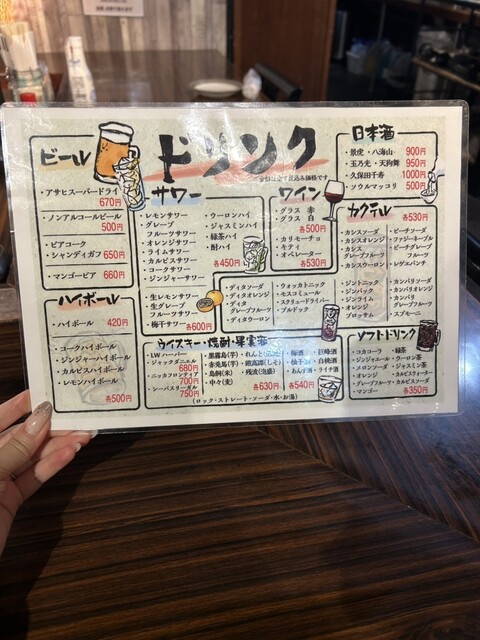 ドリンク
ビール
・アサヒスーパードライ
670円
・ノンアルコールビール
500円
・ビアコーク
・シャンディガフ 650円
・マンゴービア 660円
ハイボール
・ハイボール 420円
・コークハイボール
・ジンジャーハイボール
・カルピスハイボール
・レモンハイボール
各500円
サワー
・レモンサワー
・グレープ
フルーツサワー
・オレンジサワー
・ライムサワー
・カルピスサワー
・コークサワー
・ジンジャーサワー
・ウーロンハイ
・ジャスミンハイ
・緑茶ハイ
・酎ハイ
各450円
・生レモンサワー
・生グレープ
フルーツサワー
・梅干サワー 各600円
ワイン
・グラス 赤
・グラス 白
各500円
・カリモーチョ
・キティ
・オペレーター
各530円
日本酒
・景虎・八海山 900円
・玉乃光・天狗舞 950円
・久保田千寿 1000円
・ソウルマッコリ 500円
カクテル
各530円
・カシスソーダ
・カシスオレンジ
・カシス
グレープフルーツ
・カシスウーロン
・ピーチソーダ
・ファジーネーブル
・ピーチグレープ
フルーツ
・レゲエパンチ
・ジントニック
・ジンバック
・ジンライム
・オレンジ
ブロッサム
・カンパリソーダ
・カンパリオレンジ
・カンパリ
グレープフルーツ
・スプモーニ
・ディタソーダ
・ディタオレンジ
・ディタ
グレープフルーツ
・ディタウーロン
・ウォッカトニック
・モスコミュール
・スクリュードライバー
・ブルドック
ウイスキー・焼酎・果実酒
・I.W.ハーパー
・ジャックダニエル
680円
・ニッカフロンティア
700円
・シーバスリーガル
750円
・黒霧島(芋)
・赤兎馬(芋)
・鳥飼(米)
・中々(麦)
・れんと
・鍛高譚(しそ)
・残波(泡盛)
各630円
・梅酒
・柚子酒
・あんず酒
・巨峰酒
・白桃酒
・ライチ酒
各540円
(ロック・ストレート・ソーダ・水・お湯)
ソフトドリンク
・コカコーラ
・ジンジャエール
・メロンソーダ
・オレンジ
・グレープフルーツ
・マンゴー
・緑茶
・ウーロン茶
・ジャスミン茶
・カルピスウォーター
・カルピスソーダ
各350円